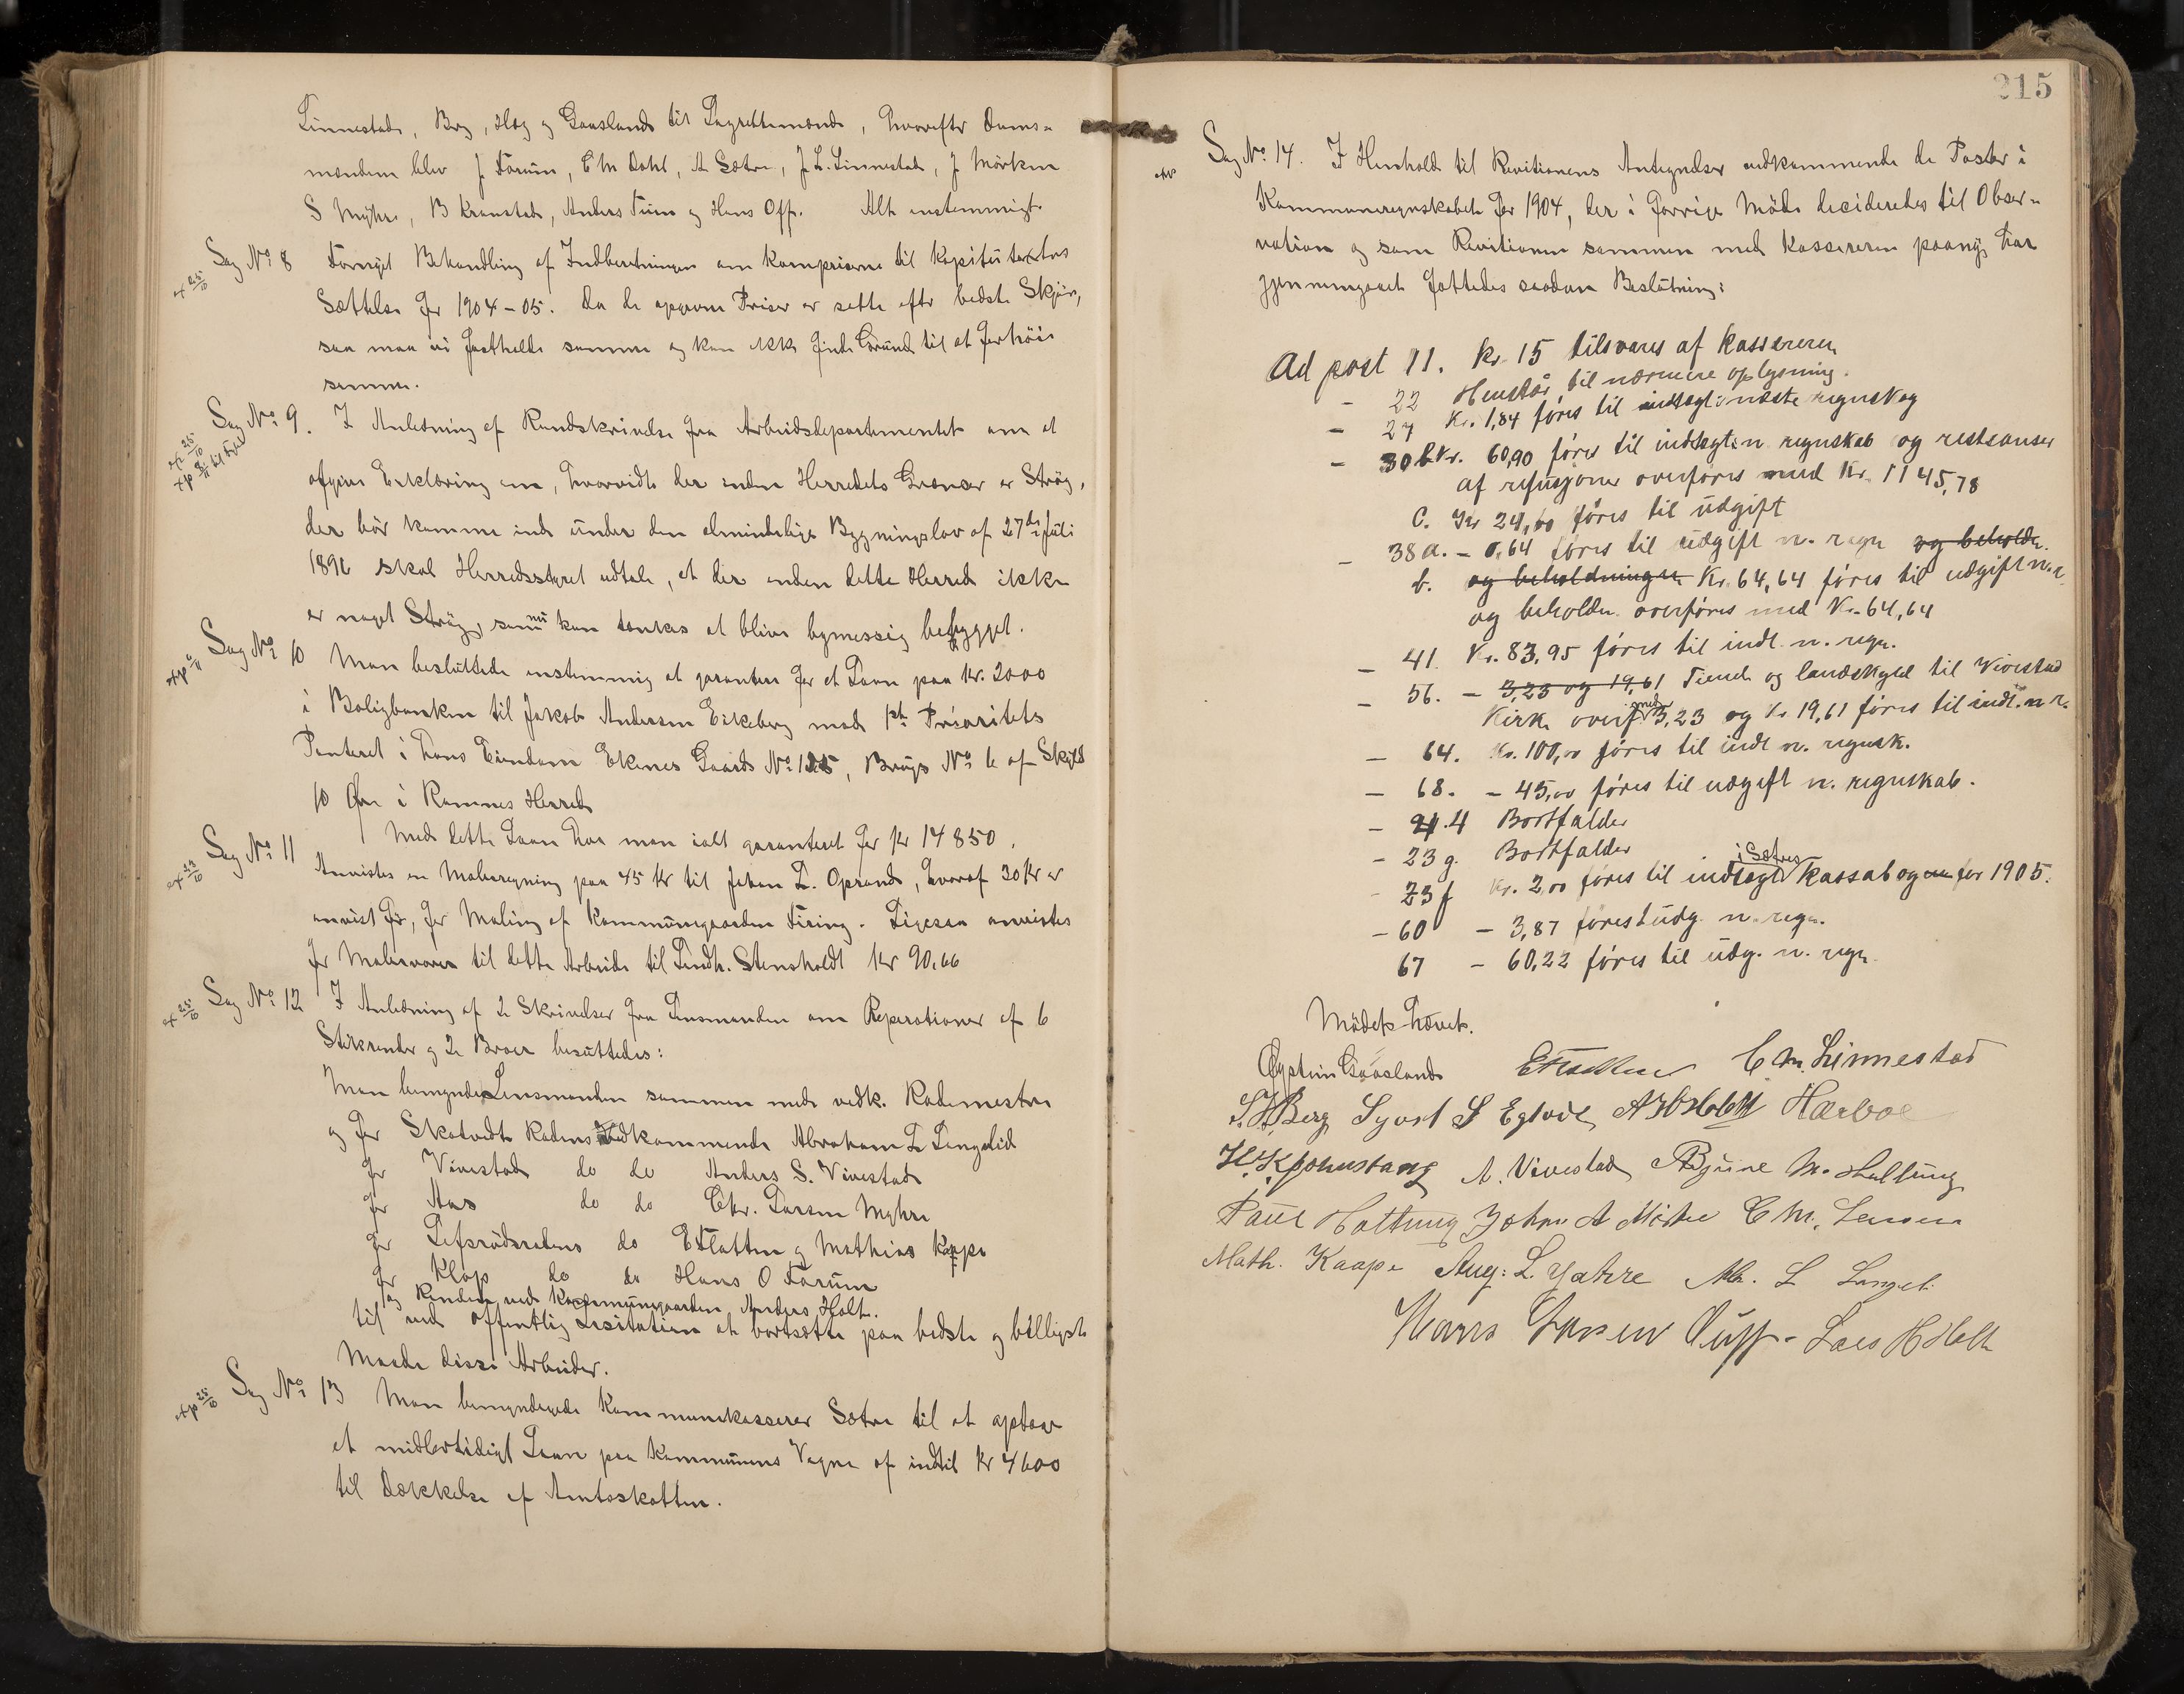 Linnestad, Berg, Høeg og Gaasland til Lagrettemænd, hvorefter Doms-
mændene blev J Forum, C M Dahl, A Sætre, J L. Linnestad, J Mörken
S Myhre, B Kronstad, Anders Tuin og Hans Off. Alt enstemmigt
Sag No. 8 Fornyet Behandling af Indberetningen om Kornpriserne til Kapitütaxtens
Sættelse for 1904-05. Da de opgivne Priser er satte efter bedste Skjön,
saa maa vi fastholde samme og kan ikke finde Grund til at forhöie
samme.
Sag No. 9. I Anledning af Rundskrivelse fra Arbeidsdepartementet om at
afgive Erklæring om, hvorvidt der inden Herredets Grænser er Strög,
der bör komme ind under den almindelige Bygningslov af 27de Juli
1896 skal Herredsstyret udtale, at der inden dette Herred ikke
er noget Strög, som nu kan tænkes at blive bymessig bebygget.
Sag No. 10 Man besluttede enstemmig at garantere for et Laan paa Kr. 2000
i Boligbanken til Jakob Andersen Eikeberg mod 1ste Prioritets
Panteret i hans Eiendom Ekenes Gaards No. 125, Brugs No. 6 af Skyld
10 Öre i Ramnes Herred
Med dette Laan har man ialt garanteret for Kr 14850.
Sag No. 11 Anvistes en Malerregning paa 45 Kr til Johan L. Oprand, hvoraf 30 Kr er
anvist för, for Maling af Kommunegaarden Firing. Ligesaa anvistes
for Malervarer til dette Arbeide til Landh. Stensholdt Kr 90,66
Sag No. 12 I Anledning af 2 Skrivelser fra Lensmanden om Reparationer af 6
Stikrender og 2 Broer besluttedes:
Man bemyndiger Lensmanden sammen med vedk. Rodemestre
og for Skatvedt Rodens Vedkommende Abraham L Langelid
for Vivestad do do Anders S. Vivestad
for Aas do do Chr. Larsen Myhre
for Lefsrödsrodens do E Flatten og Mathias Kaape
for Klop do do Hans O Forum
og Renden ved Kommunegaarden Anders Holt.
til ved offentlig Lisitation at bortsætte paa bedste og billigste
Maade disse Arbeider.
Sag No. 13 Man bemyndigede Kommunekasserer Sætre til at optage
et midlertidigt Laan paa Kommunens Vegne af indtil Kr 4600
til Dækkelse af Amtsskatten.
215
Sag No. 14. I Henhold til Revitionens Antegnelser vedkommende de Poster i
Kommuneregnskabet for 1904, der i forrige Möde decideredes til Obser-
vation og som Revitionen sammen med Kassereren paany har
gjennemgaaet fattedes saadan Beslutning:
Ad post 11. Kr. 15 tilsvares af kassereren
- 22 Henstår til nærmere oplysning.
- 27 Kr. 1,84 föres til indtægt i næste regnskag
- 30 b Kr. 60,90 föres til indtægt i n. regnskab og restanser
af refusjoner overföres med Kr. 1145,78
C. Kr 24,00 föres til udgift
- 38 a. - 0,64 föres til udgift n. regn og beholdn.
b. og beholdningen Kr. 64,64 föres til udgift n. r.
og beholdn. overföres med Kr. 64,64
- 41. Kr. 83,95 föres til indt. n. regn.
- 56. - 3,23 og 19,61 Tiende og landskyld til Vivestad
Kirke overf. med 3,23 og Kr 19,61 föres til indt. n r.
- 64. Kr. 100,00 föres til indt n. regnsk.
- 68. - 45,00 föres til udgift n. regnskab.
- 21.4 Bortfalder
- 23 g. Bortfalder
- 23 f Kr. 2,00 föres til indtægt i Sætres Kassabog for 1905.
- 60 - 3,87 föres t udg. n. regn.
67 - 60,22 föres til udg. n. regn
Mödet hævet.
Øystein Gaasland E Flatten C M. Linnestad
S. H. Berg Syvert S Eglved A Holt Hærboe
H. K. Johnstang A. Vivestad A Bjune M. Haltung
Paul Hottung Johan A Mörken C M. Larsen
Math. Kaape Aug: L. Yahre Ab. L Langel.
Hans Larsen Auff- Lars H Holt